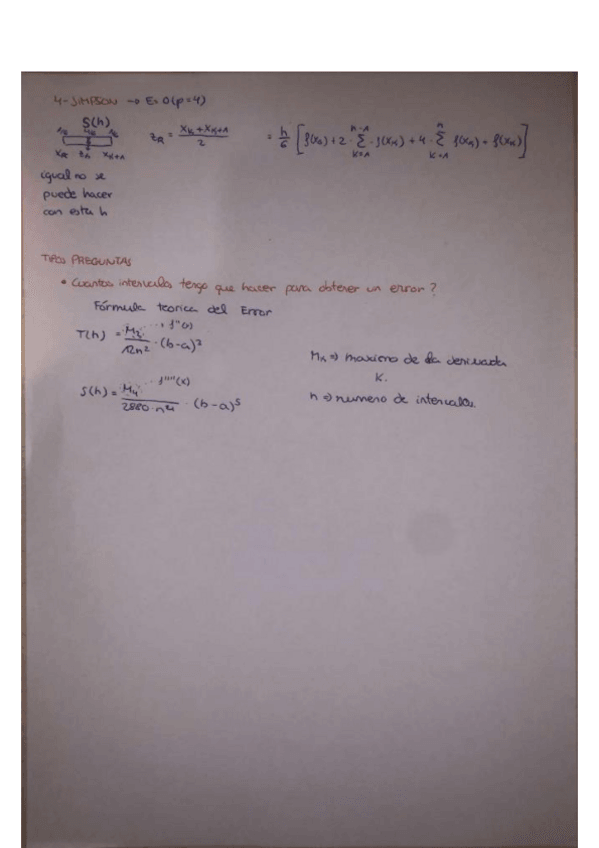 4- SIMPSON → E= O(p=4)
S(h)
x_k z_k x_{k+1}
z_k = (x_k + x_{k+1}) / 2
= h/6 [f(x_0) + 2 · Σ_{k=1}^{n-1} · f(x_k) + 4 · Σ_{k=1}^{n} f(x_k) + f(x_n)]
igual no se
puede hacer
con esta h
TIPOS PREGUNTAS
• Cuantos intervalos tengo que hacer para obtener un error?
Fórmula teorica del Error
T(h) = M_2 / 12n² · (b-a)³
f''(x)
M_k ⇒ maximo de la derivada
k.
S(h) = M_4 / 2880·n⁴ · (b-a)⁵
f''''(x)
n ⇒ numero de intervalos